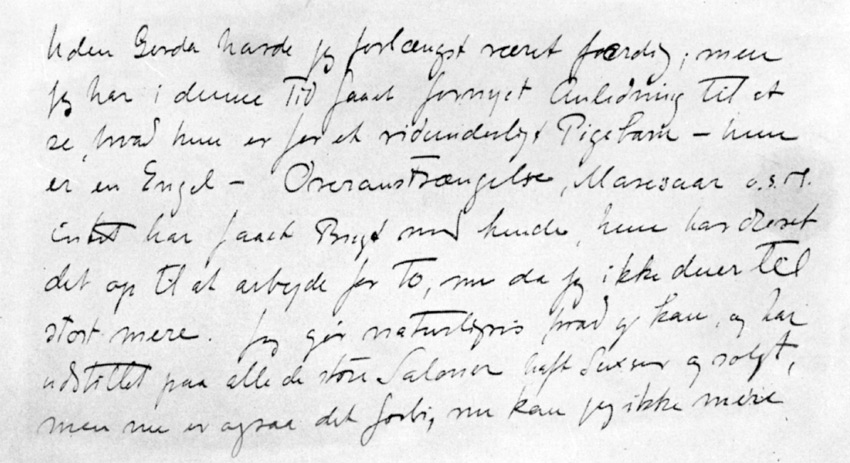 Uden Gerda havde jeg forlængst været færdig; men
jeg har i denne Tid faaet fornyet Anledning til at
se, hvad hun er for et vidunderligt Pigebarn – hun
er en Engel – Overanstrængelse, Mavesaar o.s.v.
intet har faaet Bugt med hende, hun har drevet
det op til at arbejde for to, nu da jeg ikke duer til
stort mere. Jeg gør naturligvis hvad jeg kan, og har
udstillet paa alle de store Saloner haft Succes og solgt,
men nu er ogsaa det forbi, nu kan jeg ikke mere